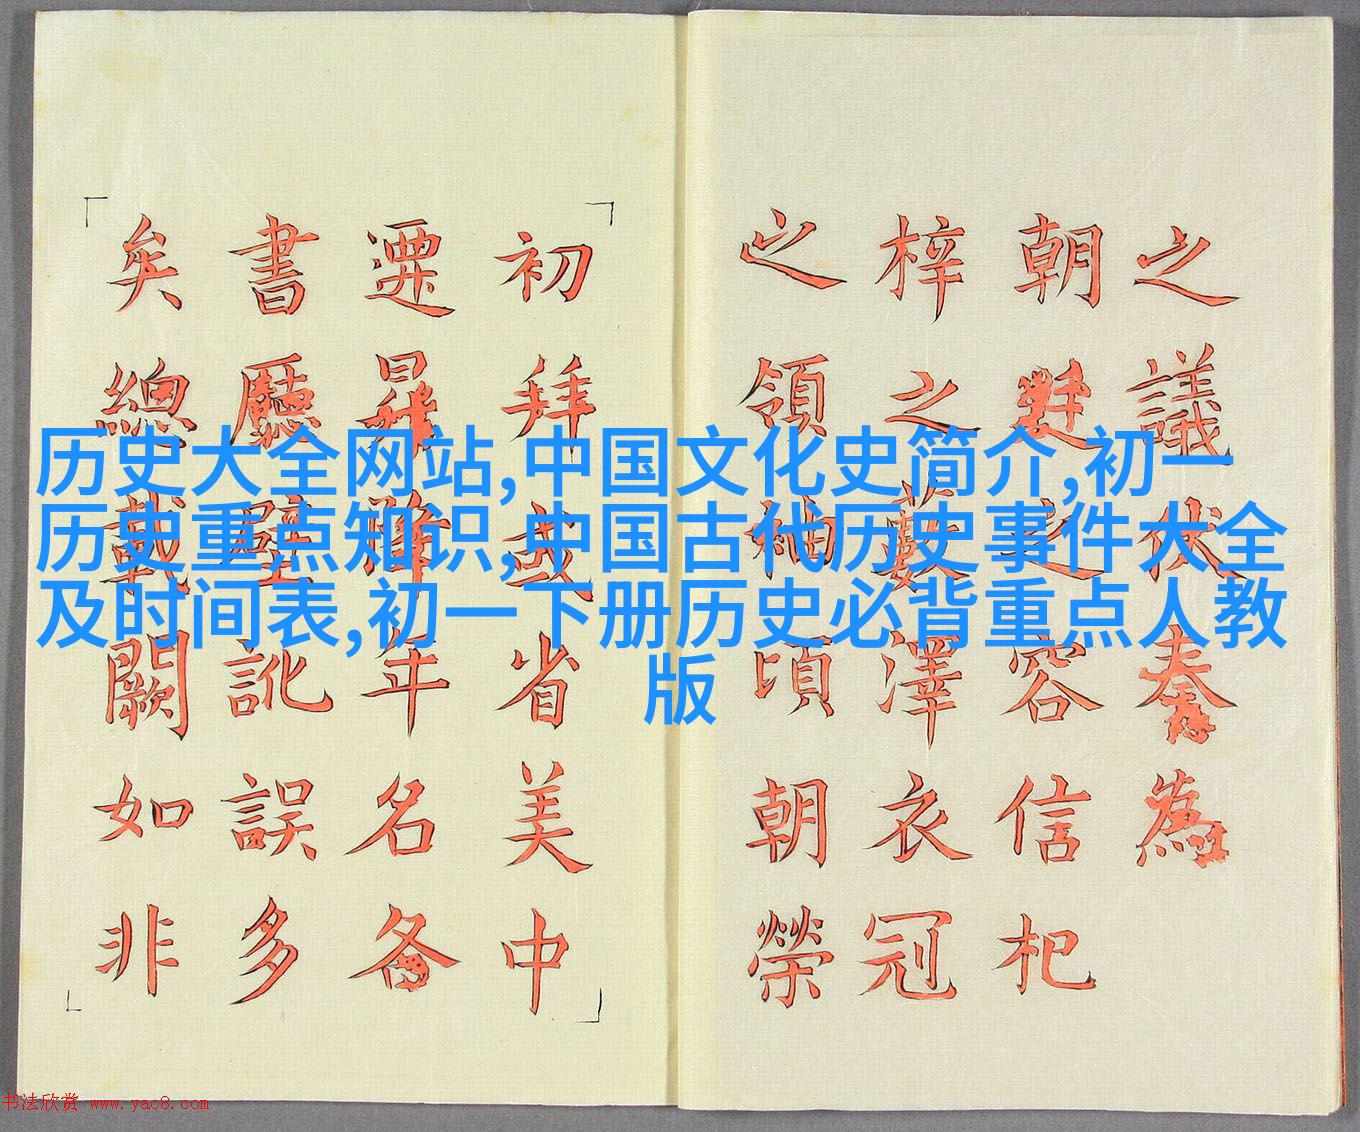 历史大全网站,中国文化史简介,初一
历史重点知识,中国古代历史事件大全
及时间表,初一下册历史必背重点人教
版
之議奏為
朝之容信杞
梓之藪澤衣冠
之領袖頃朝榮
初拜或省美中
年名备
書廳壁訛誤多
矣總載闕如非
书法欣赏 www.yac8.com